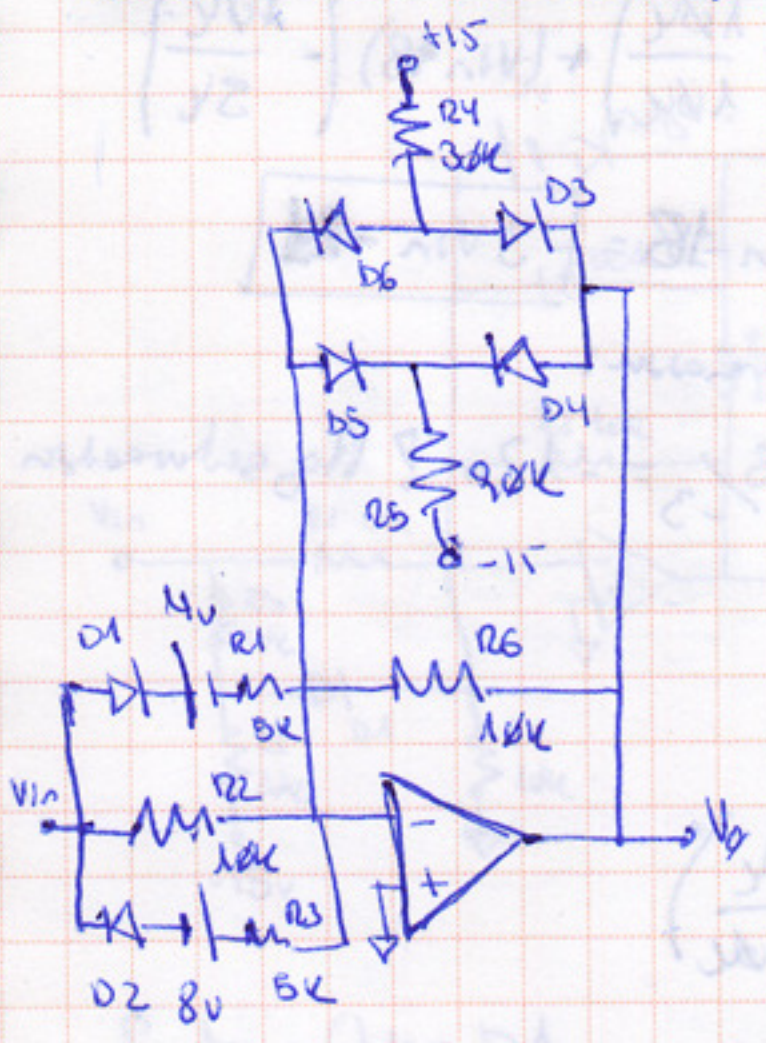 +15
R4
30K
D3
D6
D5
D4
R5
-15
D1
4V
R1
5K
R6
10K
Vin
R2
10K
-
+
V0
D2
8V
R3
5K